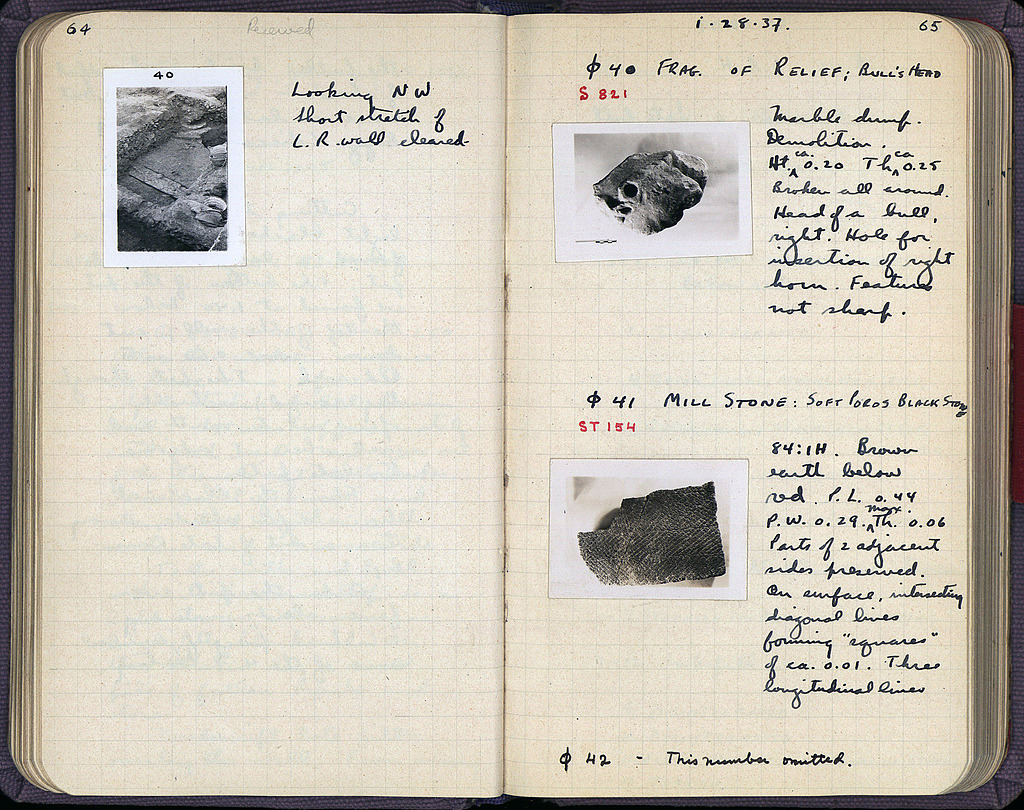 64
40
Looking NW
Short stretch of
L.R. wall cleared
1·28·37.
65
ϕ 40 FRAG. OF RELIEF; BULL'S HEAD
S 821
Marble dump.
Demolition.
Ht. ca. 0.20 Th. ca 0.25
Broken all around.
Head of a bull,
right. Hole for
insertion of right
horn. Features
not sharp.
ϕ 41 MILL STONE: SOFT POROS BLACK STONE
ST 154
84:1H. Brown
earth below
red. P.L. 0.44
P.W. 0.29. max. Th. 0.06
Parts of 2 adjacent
sides preserved.
On surface, intersecting
diagonal lines
forming "squares"
of ca. 0.01. Three
longitudinal lines
ϕ 42 - This number omitted.